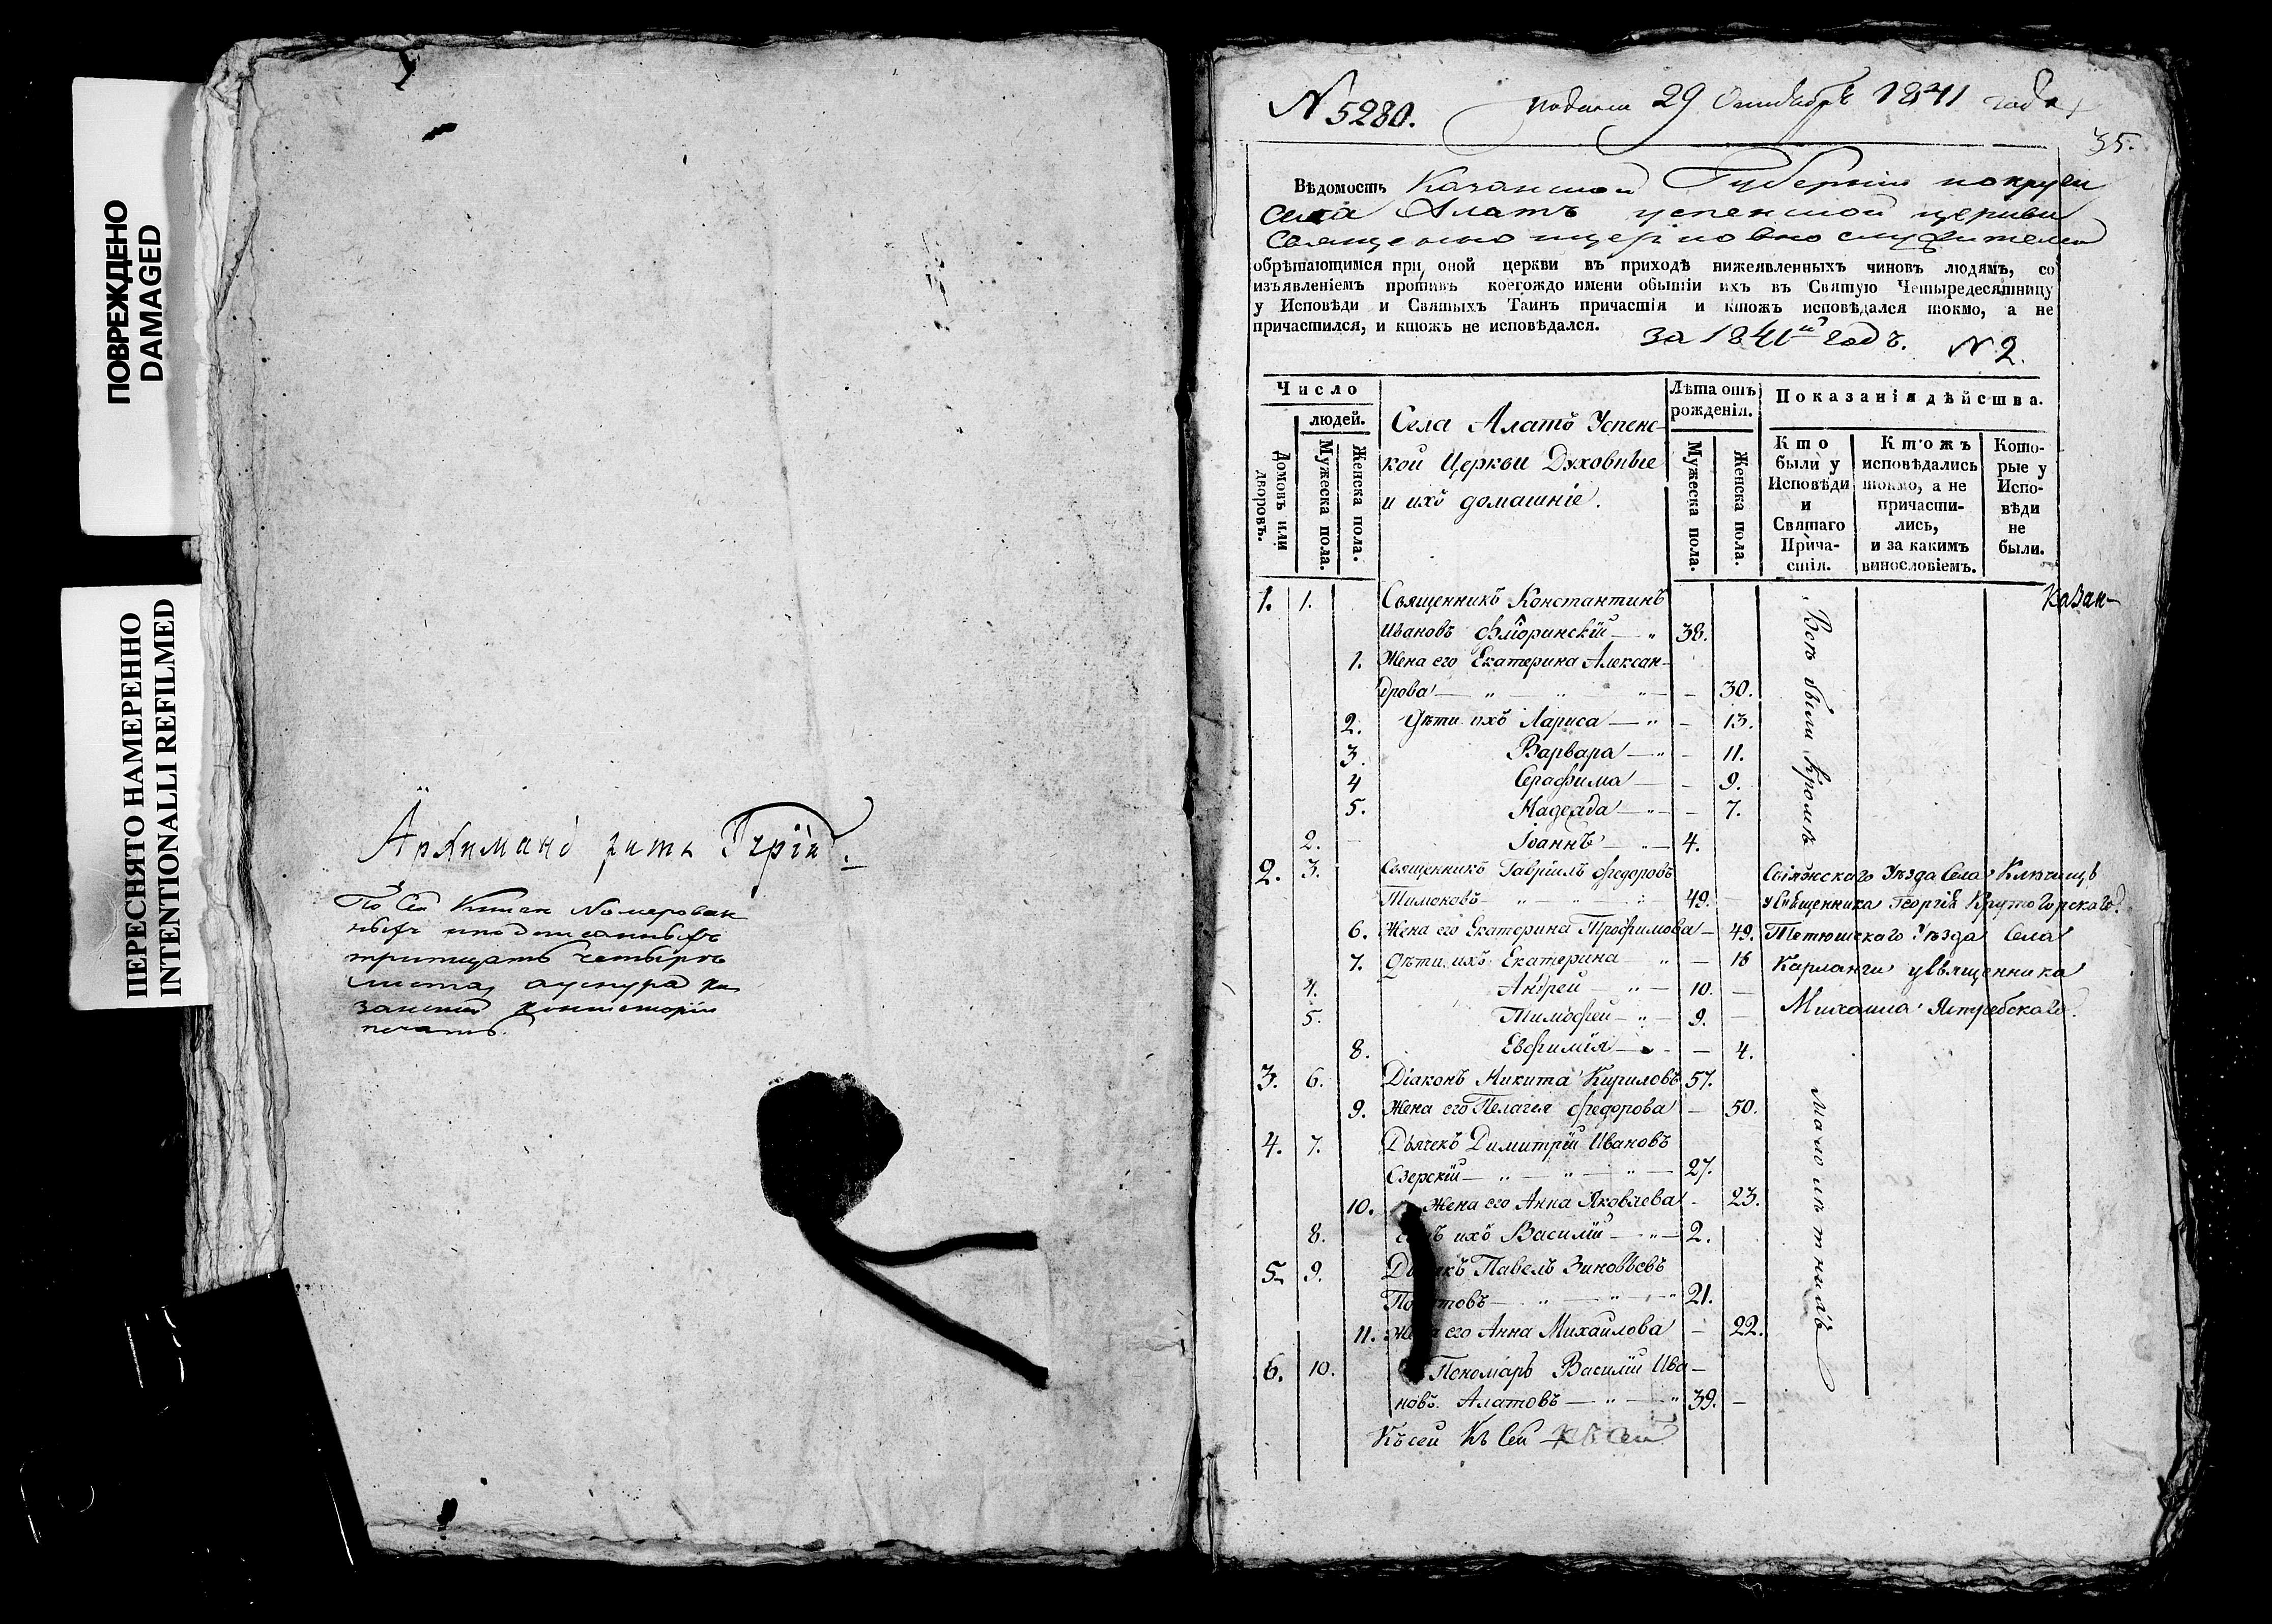 ПОВРЕЖДЕНО
DAMAGED
ПЕРЕСНЯТО НАМЕРЕННО
INTENTIONALLI REFILMED
Архиманд ритъ Гурій
По Сей
тритцать четыре
листа
печать.
N 5280. 29 Октября 1841 года
35.
Вѣдомость Казанской Губерніи
села Алатъ успенской церкви
обрѣтающимся при оной церкви въ приходѣ нижеявленныхъ чиновъ людямъ, со
изъявленіемъ противъ коегождо имени обытіи ихъ въ Святую Четыредесятницу
у Исповѣди и Святыхъ Таинъ причастія и ктожъ исповѣдался токмо, а не
причастился, и ктожъ не исповѣдался.
за 1841й годъ. N 2.
Число
людей.
Домовъ или дворовъ.
Мужеска пола.
Женска пола.
Села Алатъ Успенс-
кой Церкви Духовные
и ихъ домашніе.
Лѣта отъ рожденія.
Мужеска пола.
Женска пола.
Показанія дѣйства.
Кто были у Исповѣди и Святаго Причастія.
Ктожъ исповѣдались токмо, а не причастились, и за какимъ винословіемъ.
Которые у Исповѣди не были.
1. 1. Священникъ Константинъ
Ивановъ Флоринскій — 38.
1. Жена его Екатерина Алексан-
дрова — — 30.
2. Дѣти ихъ Лариса — — 13.
3. Варвара — — 11.
4 Серафима — — 9.
5. Надежда — — 7.
2. Іоаннъ — 4.
2. 3. Священникъ Гавріилъ Федоровъ
Тимоновъ — 49.
6. Жена его Екатерина Трофимова — 49.
7. Дѣти ихъ Екатерина — — 16
4. Андрей — 10. —
5. Тимофей — 9. —
8. Евфимія — — 4.
3. 6. Діаконъ Никита Кириловъ 57.
9. Жена его Пелагея Федорова — 50.
4. 7. Дьячекъ Димитрій Ивановъ
Озерскій — 27.
10. Жена его Анна Яковлева — 23.
8. ихъ Василій — 2.
5. 9. Павелъ Зиновьевъ
21.
11. Жена его Анна Михайлова — 22.
6. 10. Пономарь Василій Ива-
новъ Алатовъ — 39. —
Къ сей Къ Сей Къ Сей
Всѣ были Кромѣ
малолѣтнихъ
Казан-
Свіяжскаго Уѣзда Села Ключищъ
Священника Георгія Крутогорскаго.
Тетюшскаго Уѣзда Села
Карланги Священника
Михаила Ястребскаго.